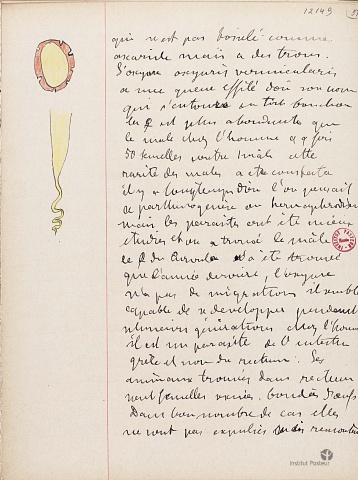 12149
qui n'est pas bosselé comme
ascaride mais a des trous.
L'oxyure oxyuris vermicularis
a une queue effilé d'où son nom
qui s'entoure en tire bouchon
la ♀ est plus abondante que
le male chez l'homme
50 femelles contre 1 male cette
rareté des males a été constaté
il y a longtemps d'où l'on pensait
de parthenogenèse ou hermaphrodisme
mais les parasites ont été mieux
étudiés et on a trouvé le male
le ♀ du n'a été trouvé
que l'année dernière, l'oxyure
n'a pas de migrations il semble
capable de se developper pendant
plusieurs générations chez l'homme
il est un parasite de l'intestin
grele et non du rectum. Les
animaux trouvés dans rectum
sont femelles bondés d'oeufs
Dans bon nombre de cas elles
ne sont pas expulsés mais remontent
INSTITUT PASTEUR
Institut Pasteur